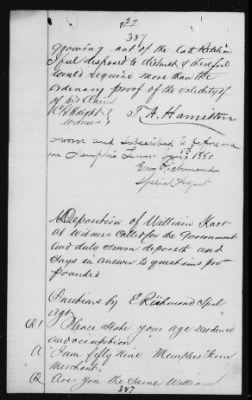 387
growing out of the late Rebellion
I feel disposed to distrust & therefore
would require more than the
ordinary proof of the validity of
of his claim
J. A. Hamilton
Sworn and subscribed to before me
in Memphis Tenn 1880
E Richmond
Special Agent
Deposition of William Root
a Witness called for the Government
and duly sworn deposeth and
says in answer to questions pro
pounded
Questions by E Richmond Spcl
agt.
Q1 Please state your age residence
and occupation
A I am fifty nine Memphis Tenn
Merchant.
Q Are you the same William
387